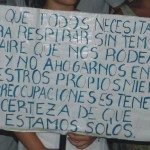 QUE TODOS NECESITA
PARA RESPIRAR SIN TEM
AIRE QUE NOS RODEA
Y NO AHOGARNOS EN
ESTROS PROPIOS MIE
PREOCUPACIONES ES TENE
CERTEZA DE QUE
ESTAMOS SOLOS.